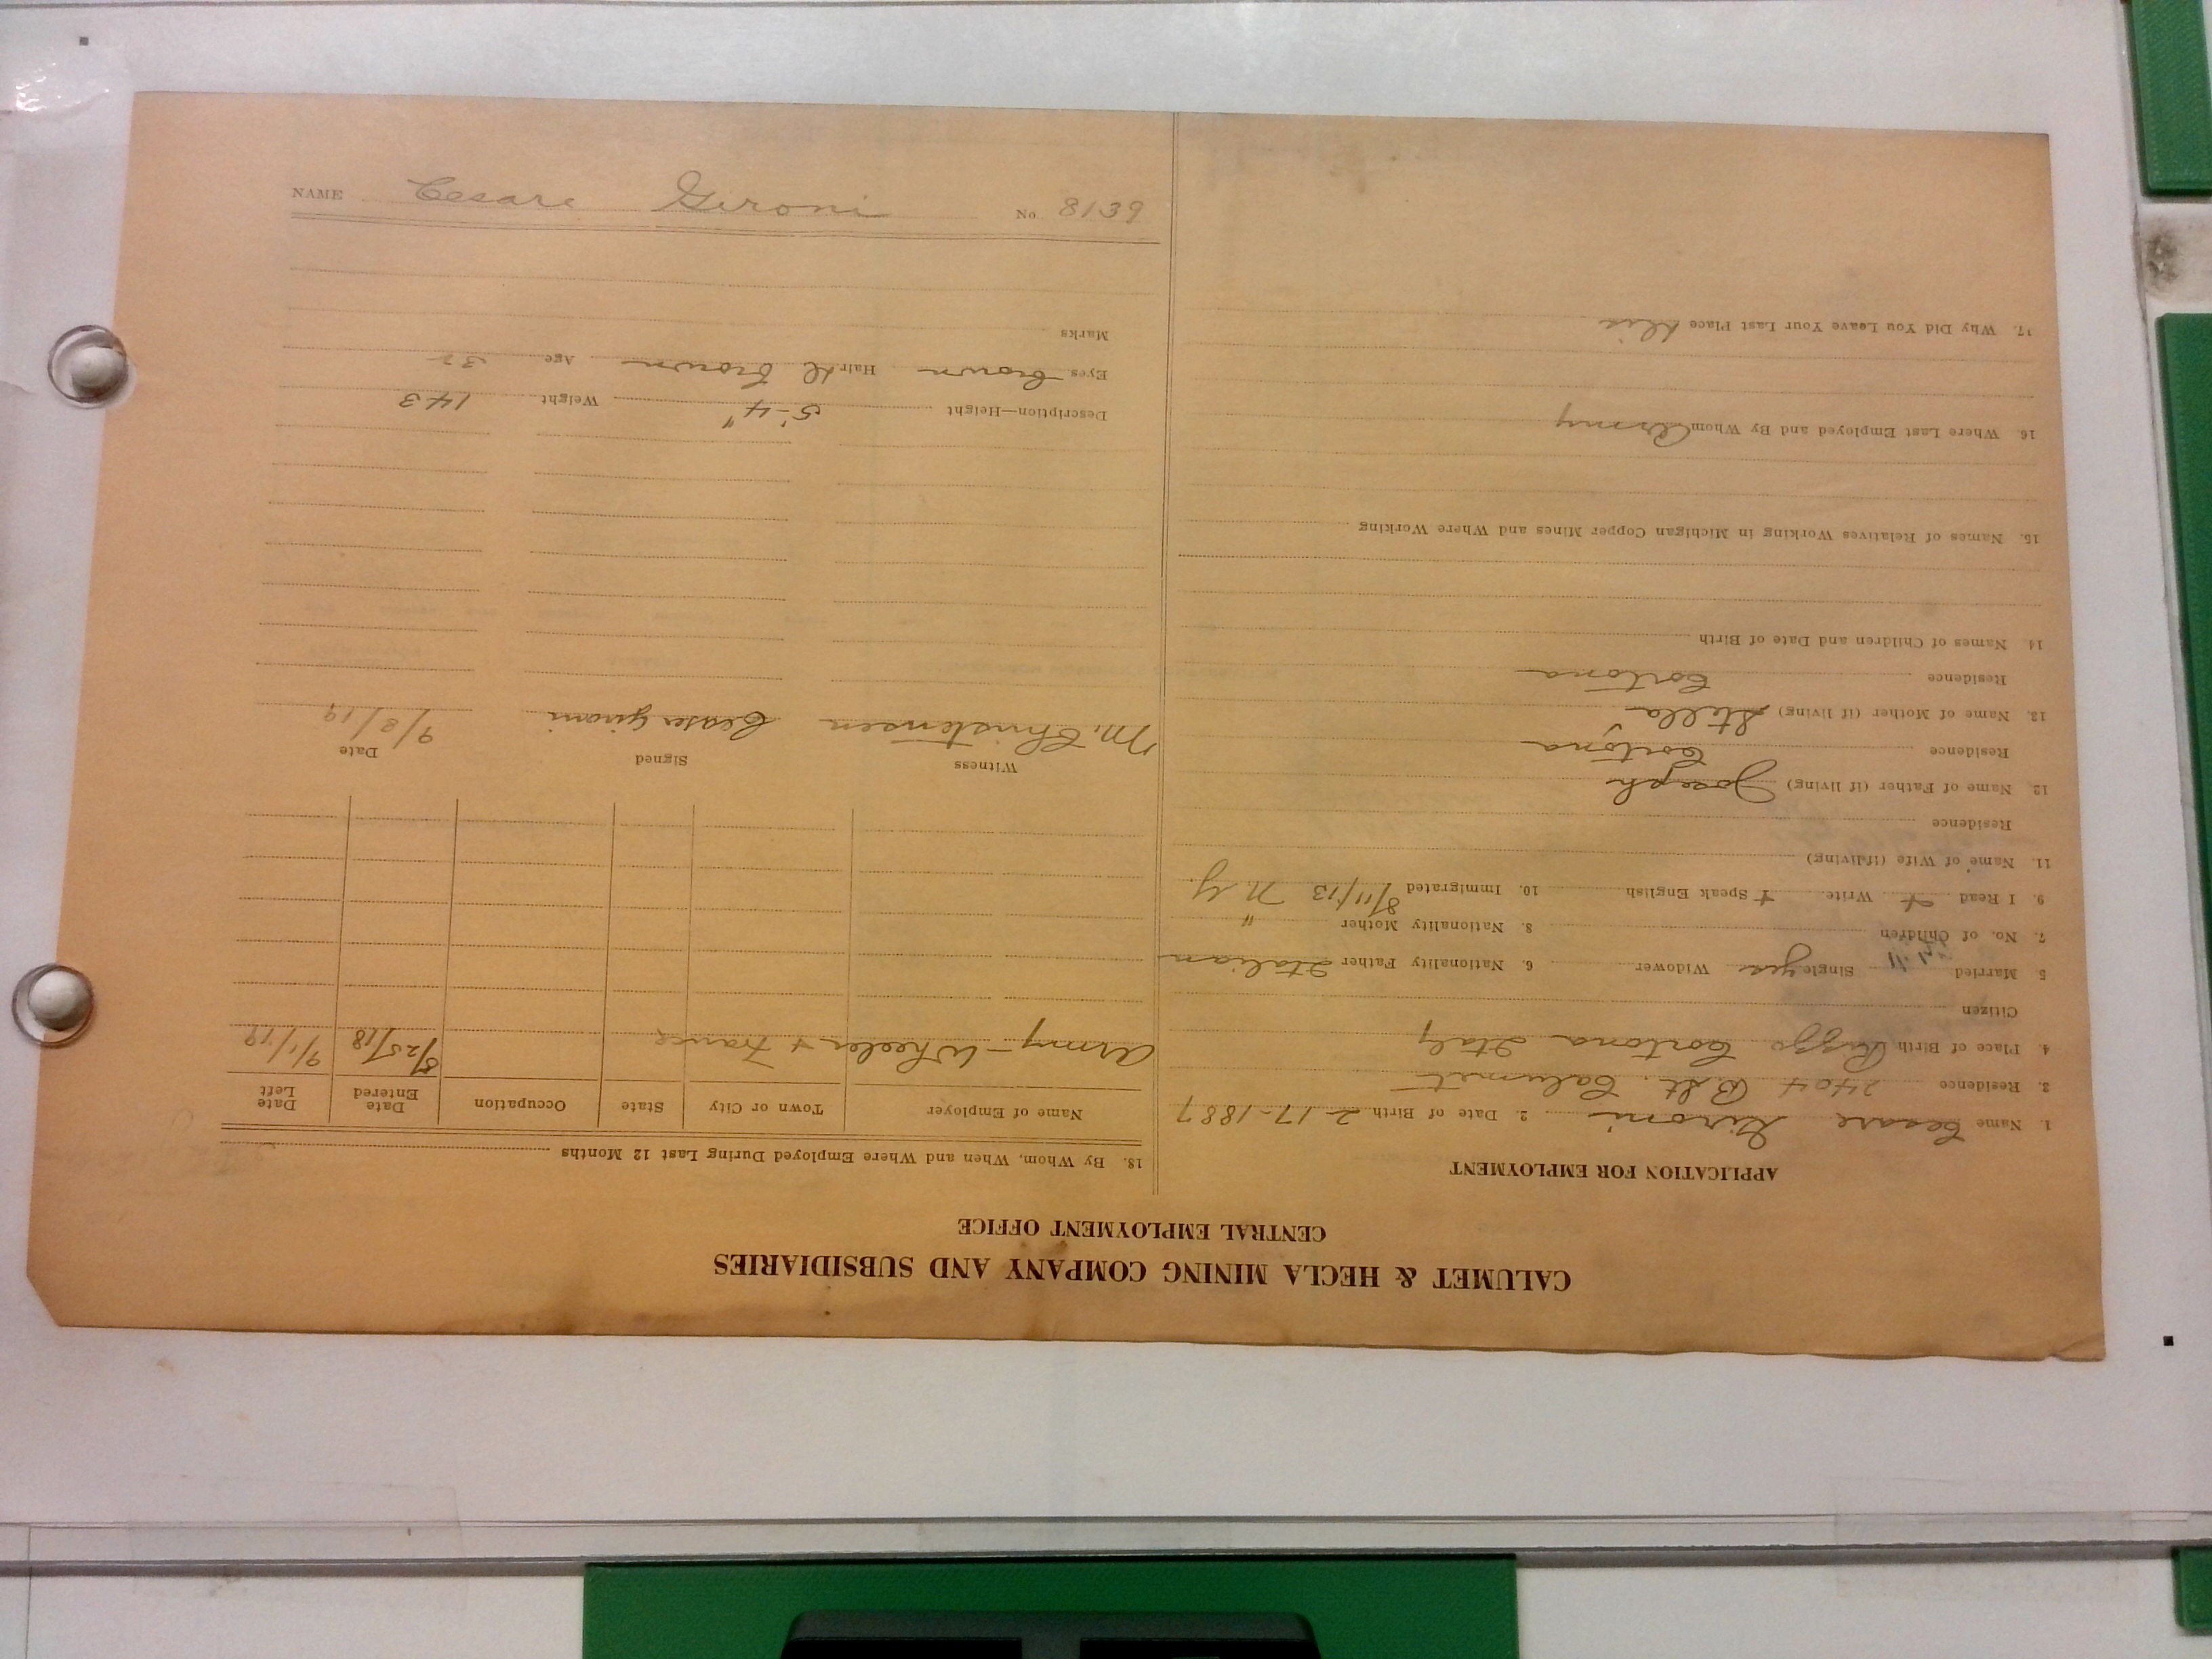 CALUMET & HECLA MINING COMPANY AND SUBSIDIARIES
CENTRAL EMPLOYMENT OFFICE
APPLICATION FOR EMPLOYMENT
1. Name Cesare Gironi 2. Date of Birth 2-17-1887
3. Residence 2404 B St. Calumet
4. Place of Birth Cortona Italy
Citizen
5 Married Single yes Widower 6. Nationality Father Italian
7. No. of Children 8. Nationality Mother "
9. I Read + Write + Speak English 10. Immigrated 8/11/13 N.Y.
11. Name of Wife (if living)
Residence
12. Name of Father (if living) Joseph
Residence Cortona
13. Name of Mother (if living) Stella
Residence Cortona
14. Names of Children and Date of Birth
15. Names of Relatives Working in Michigan Copper Mines and Where Working
16. Where Last Employed and By Whom Army
17. Why Did You Leave Your Last Place Dis
18. By Whom, When and Where Employed During Last 12 Months
Name of Employer Town or City State Occupation Date Entered Date Left
Army - Wheeler + France 5/25/18 9/1/19
Witness Signed Date
M. Christensen Ceaser Gironi 9/8/19
Description—Height 5'-4" Weight 143
Eyes Brown Hair d Brown Age 32
Marks
NAME Cesare Geroni No. 8139